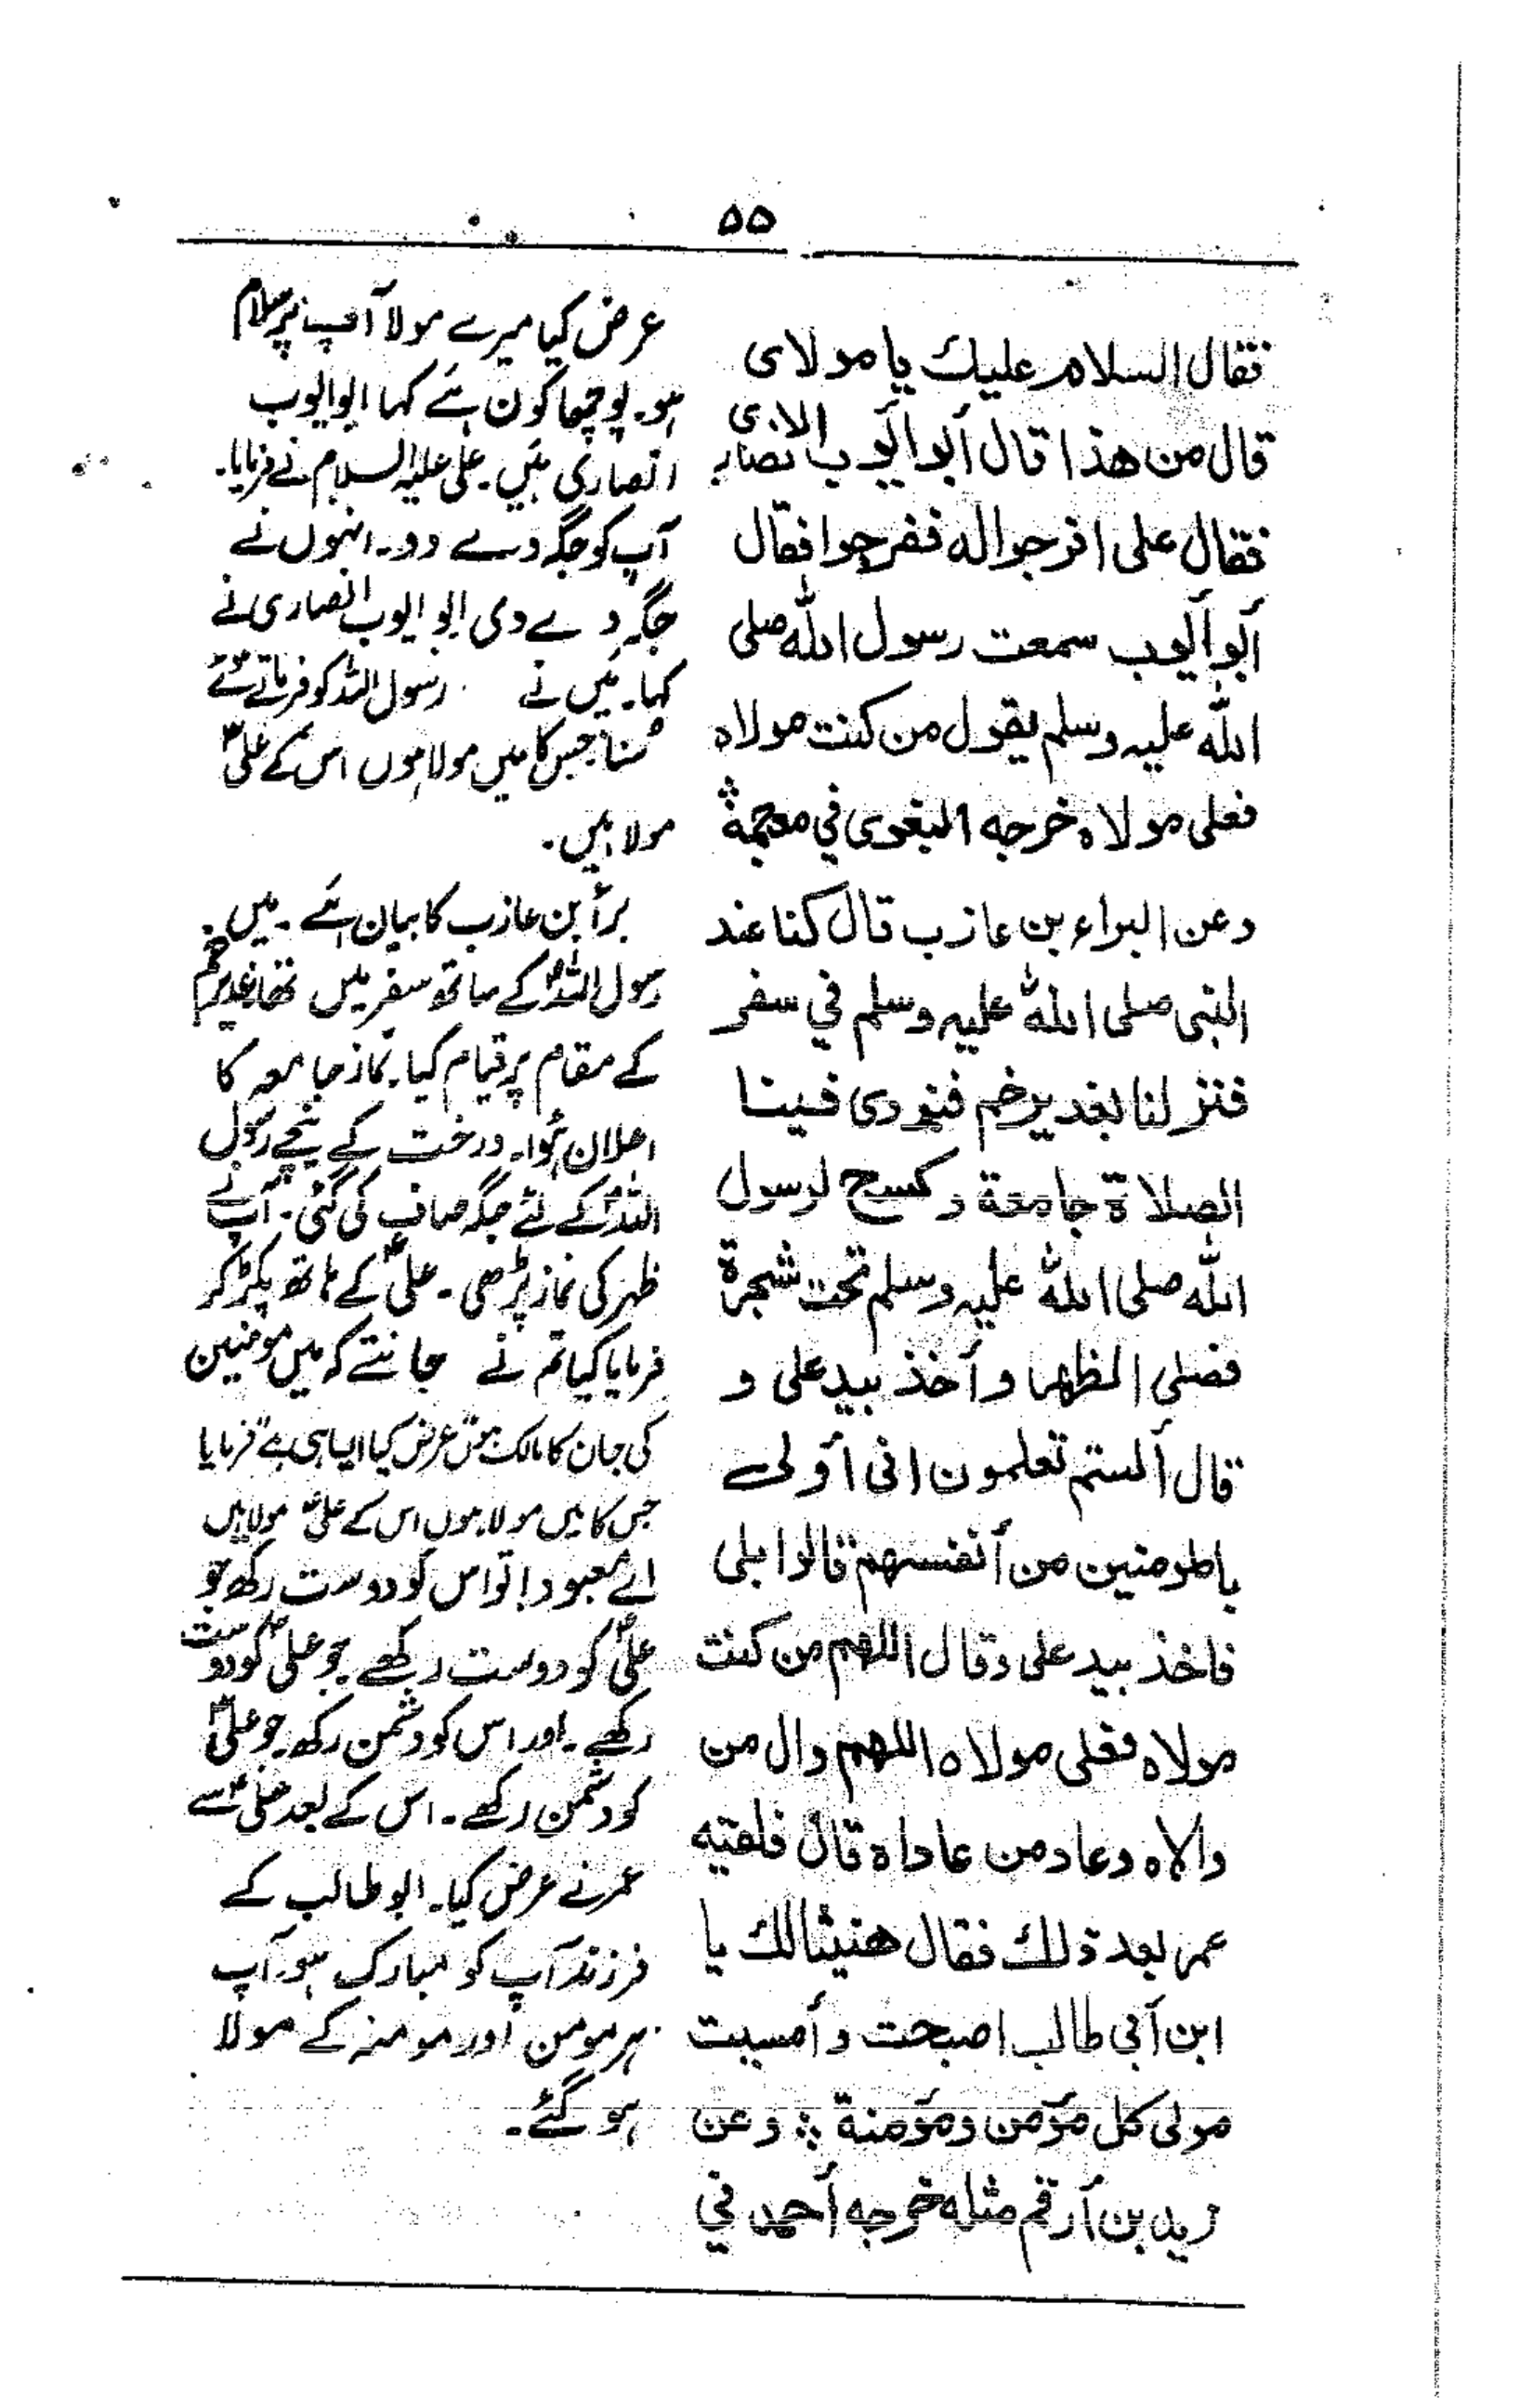 ۵۵
فقال السلام عليك يا مولاى
قال من هذا قال أبو أيوب الانصارى
فقال على افرجوا له ففرجوا فقال
أبو أيوب سمعت رسول الله صلى
الله عليه وسلم يقول من كنت مولاه
فعلى مولاه خرجه البغوى في معجمه
وعن البراء بن عازب قال كنا عند
النبى صلى الله عليه وسلم في سفر
فنزلنا بغدير خم فنودى فينا
الصلاة جامعة وكسح لرسول
الله صلى الله عليه وسلم تحت شجرة
فصلى الظهر وأخذ بيد على و
قال ألستم تعلمون انى أولى
بالمومنين من أنفسهم قالوا بلى
فاخذ بيد على وقال اللهم من كنت
مولاه فعلى مولاه اللهم وال من
والاه وعاد من عاداه قال فلقيه
عمر بعد ذلك فقال هنيئا لك يا
ابن أبى طالب اصبحت وأمسيت
مولى كل مؤمن ومؤمنة ؞ وعن
زيد بن أرقم مثله خرجه أحمد في
عرض کیا میرے مولا آپ پر سلام
ہو۔ پوچھا کون ہے کہا ابو ایوب
انصاری ہیں۔ علی علیہ السلام نے فرمایا۔
آپ کو جگہ دے دو۔ انہوں نے
جگہ دے دی ابو ایوب انصاری نے
کہا۔ میں نے رسول اللہ کو فرماتے ہوئے
سُنا جس کا میں مولا ہوں اس کے علیؑ
مولا ہیں۔
برأ بن عازب کا بیان ہے۔ میں
رسول اللہؐ کے ساتھ سفر میں تھا غدیر خم
کے مقام پر قیام کیا۔ نماز جامعہ کا
اعلان ہُوا۔ درخت کے نیچے رسول
اللہؐ کے لئے جگہ صاف کی گئی۔ آپ نے
ظہر کی نماز پڑھی۔ علیؑ کے ہاتھ پکڑ کر
فرمایا کیا تم نے جانتے کہ میں مومنین
کی جان کا مالک ہوں عرض کیا ایسا ہی ہے فرمایا
جس کا میں مولا ہوں اس کے علیؑ مولا ہیں
اے معبود! تو اس کو دوست رکھ جو
علیؑ کو دوست رکھے جو علیؑ کو دوست
رکھے۔ اور اس کو دشمن رکھ۔ جو علیؑ
کو دشمن رکھے۔ اس کے بعد علیؑ سے
عمر نے عرض کیا۔ ابو طالب کے
فرزند آپ کو مبارک ہو۔ آپ
ہر مومن اور مومنہ کے مولا
ہو گئے۔